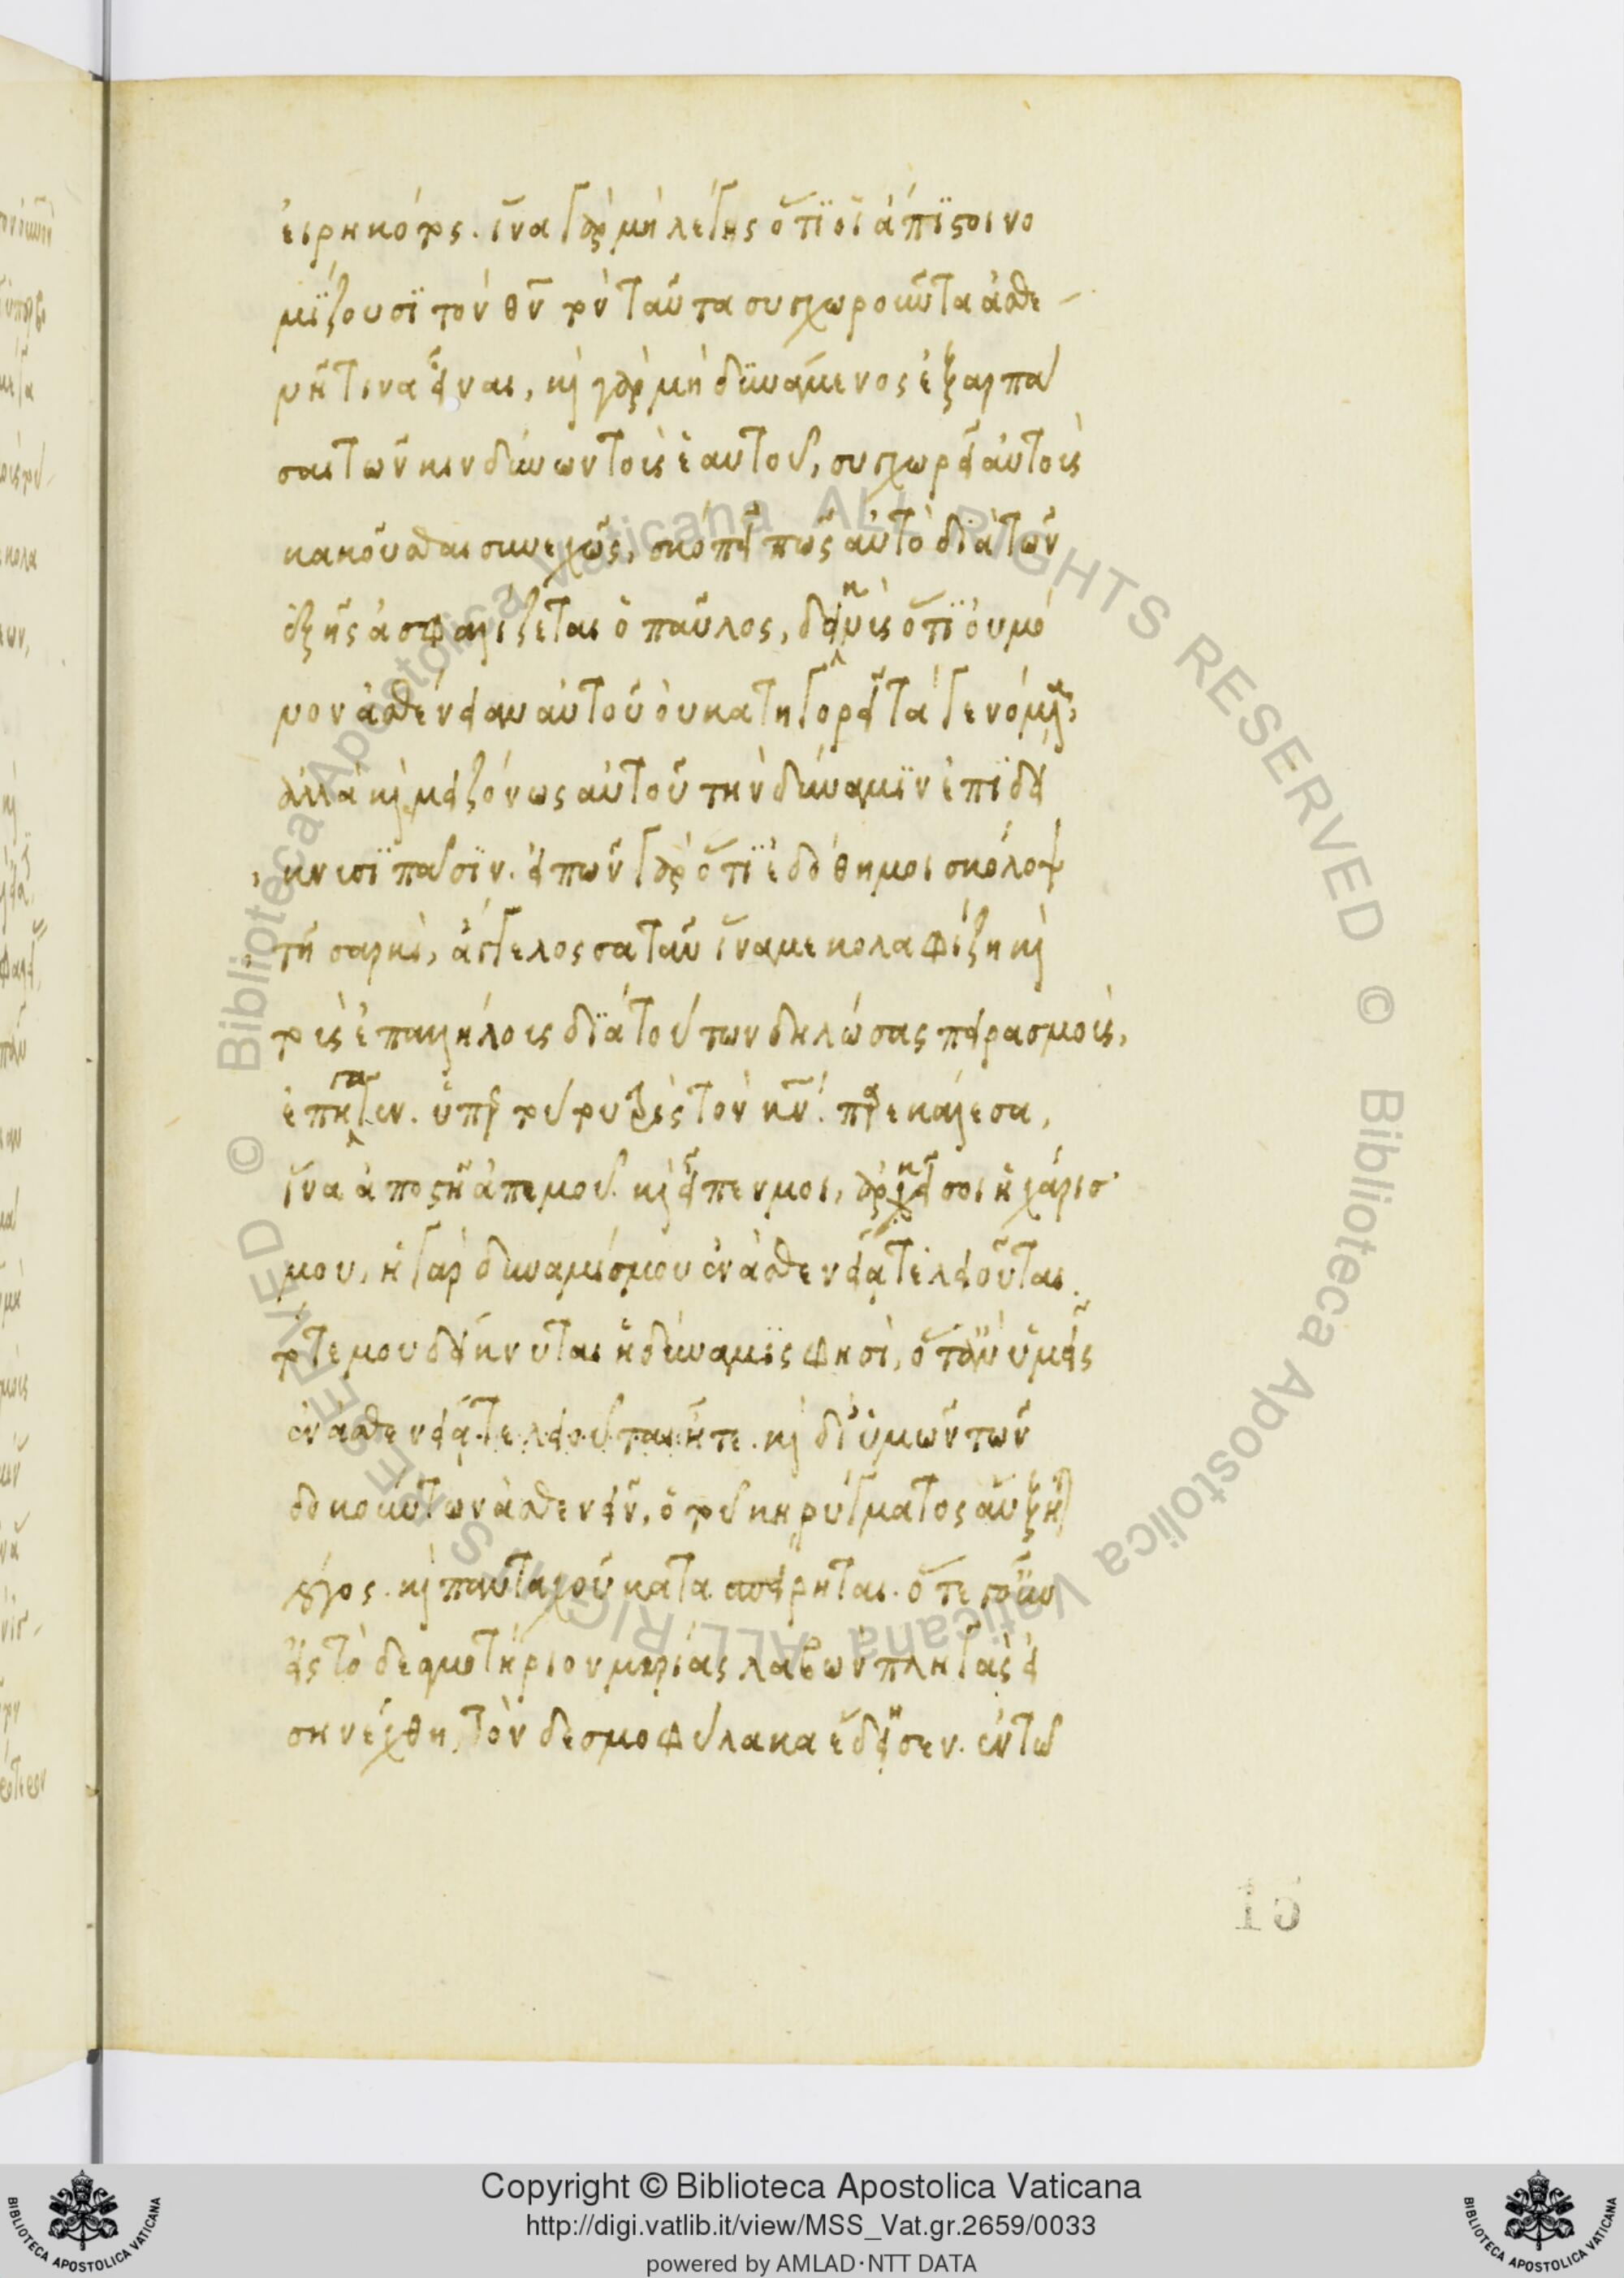 εἰρηκότος. ἵνα γὰρ μὴ λέγης ὅτϊ οἱ ἄπϊστοι νο
μϊζουσϊ τὸν θν τὸν ταῦτα συγχωροῦντα ἀσθε
νῆ τινα εἶναι, καὶ γὰρ μὴ δϋνάμενος ἐξαρπά
σαι τῶν κινδύνων τοὺς ἑαυτοῦ, συγχωρεῖ αὐτοὺς
κακοῦσθαι συνεχῶς, σκόπει πῶς αὐτὸ διὰ τῶν
ἑξῆς ἀσφαλίζεται ὁ παῦλος, δεικνὺς ὅτϊ οὐ μό
νον ἀσθένειαν αὐτοῦ οὐ κατηγορεῖ τὰ γενόμενα,
ἀλλὰ καὶ μειζόνως αὐτοῦ τὴν δύναμϊν ἐπϊδεί
κνυσϊ πᾶσϊν. εἰπὼν γὰρ ὅτϊ ἐδόθη μοι σκόλοψ
τῆ σαρκὶ, ἄγγελος σατᾶν ἵνα με κολαφίζη καὶ
τοὺς ἐπαλλήλους διὰ τούτων δηλώσας πειρασμοὺς,
ἐπήγαγεν. ὑπὲρ τούτου τρὶς τὸν κν παρεκάλεσα,
ἵνα ἀποστῆ ἀπ εμοῦ. καὶ εἶπεν μοι, ἀρκεῖ σοι ἡ χάρισ
μου, ἡ γὰρ δύναμίς μου ἐν ἀσθενείᾳ τελειοῦται.
τότε μου δείκνυται ἡ δύναμϊς φησὶ, ὅταν ὑμεῖς
ἐν ἀσθενείᾳ τελειοῦται ἦτε. καὶ δι ὑμῶν τῶν
δοκούντων ἀσθενεῖν, ὁ τοῦ κηρύγματος αὔξηται
λόγος. καὶ πανταχοῦ κατασπείρηται. ὅτε γοῦν
εἰς τὸ δεσμοτήριον μυρίας λαβὼν πληγὰς εἰ
σηνέχθη, τὸν δεσμοφύλακα ἔδησεν. ἐν τῶ
15
Copyright © Biblioteca Apostolica Vaticana
http://digi.vatlib.it/view/MSS_Vat.gr.2659/0033
powered by AMLAD·NTT DATA